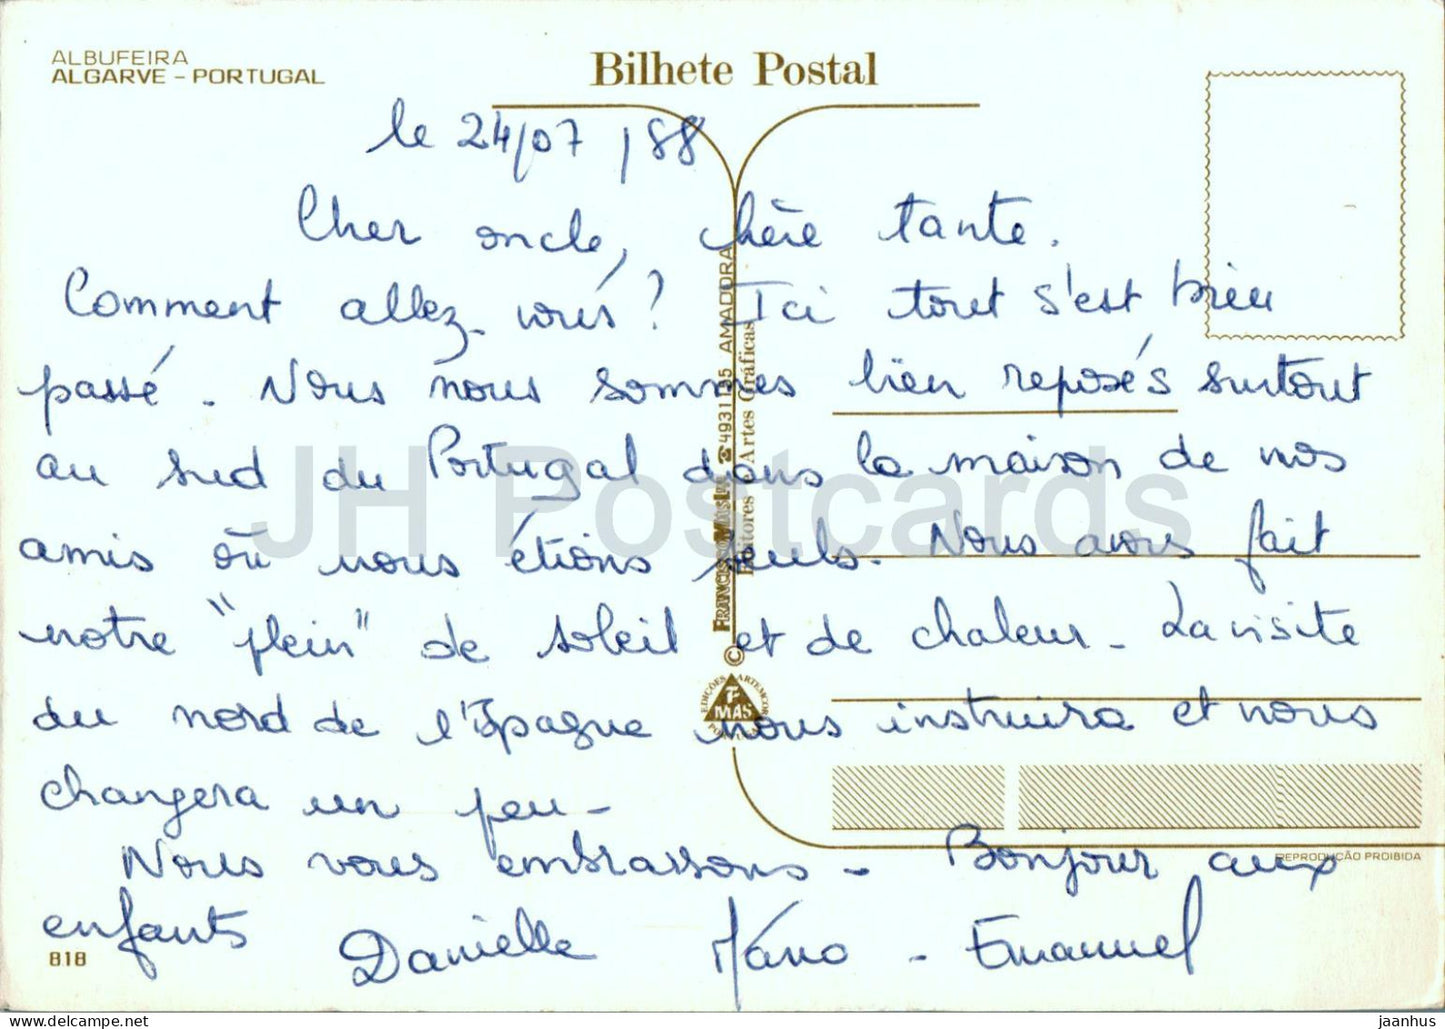 ALBUFEIRA
ALGARVE - PORTUGAL
Bilhete Postal
le 24/07/88
Cher oncle, chère tante.
Comment allez-vous? Ici tout s'est bien
passé. Nous nous sommes bien reposés surtout
au sud du Portugal dans la maison de nos
amis où nous étions seuls. Nous avons fait
notre "plein" de soleil et de chaleur - La visite
du nord de l'Espagne nous instruira et nous
changera un peu -
Nous vous embrassons - Bonjour aux
enfants Danielle - Emanuel
818
☎4931195 AMADORA
Editores - Artes Gráficas
©
EDIÇÕES ARTEMCOR
F
MAS
PORTUGAL
REPRODUÇÃO PROIBIDA
JH Postcards
www.delcampe.net
jaanhus